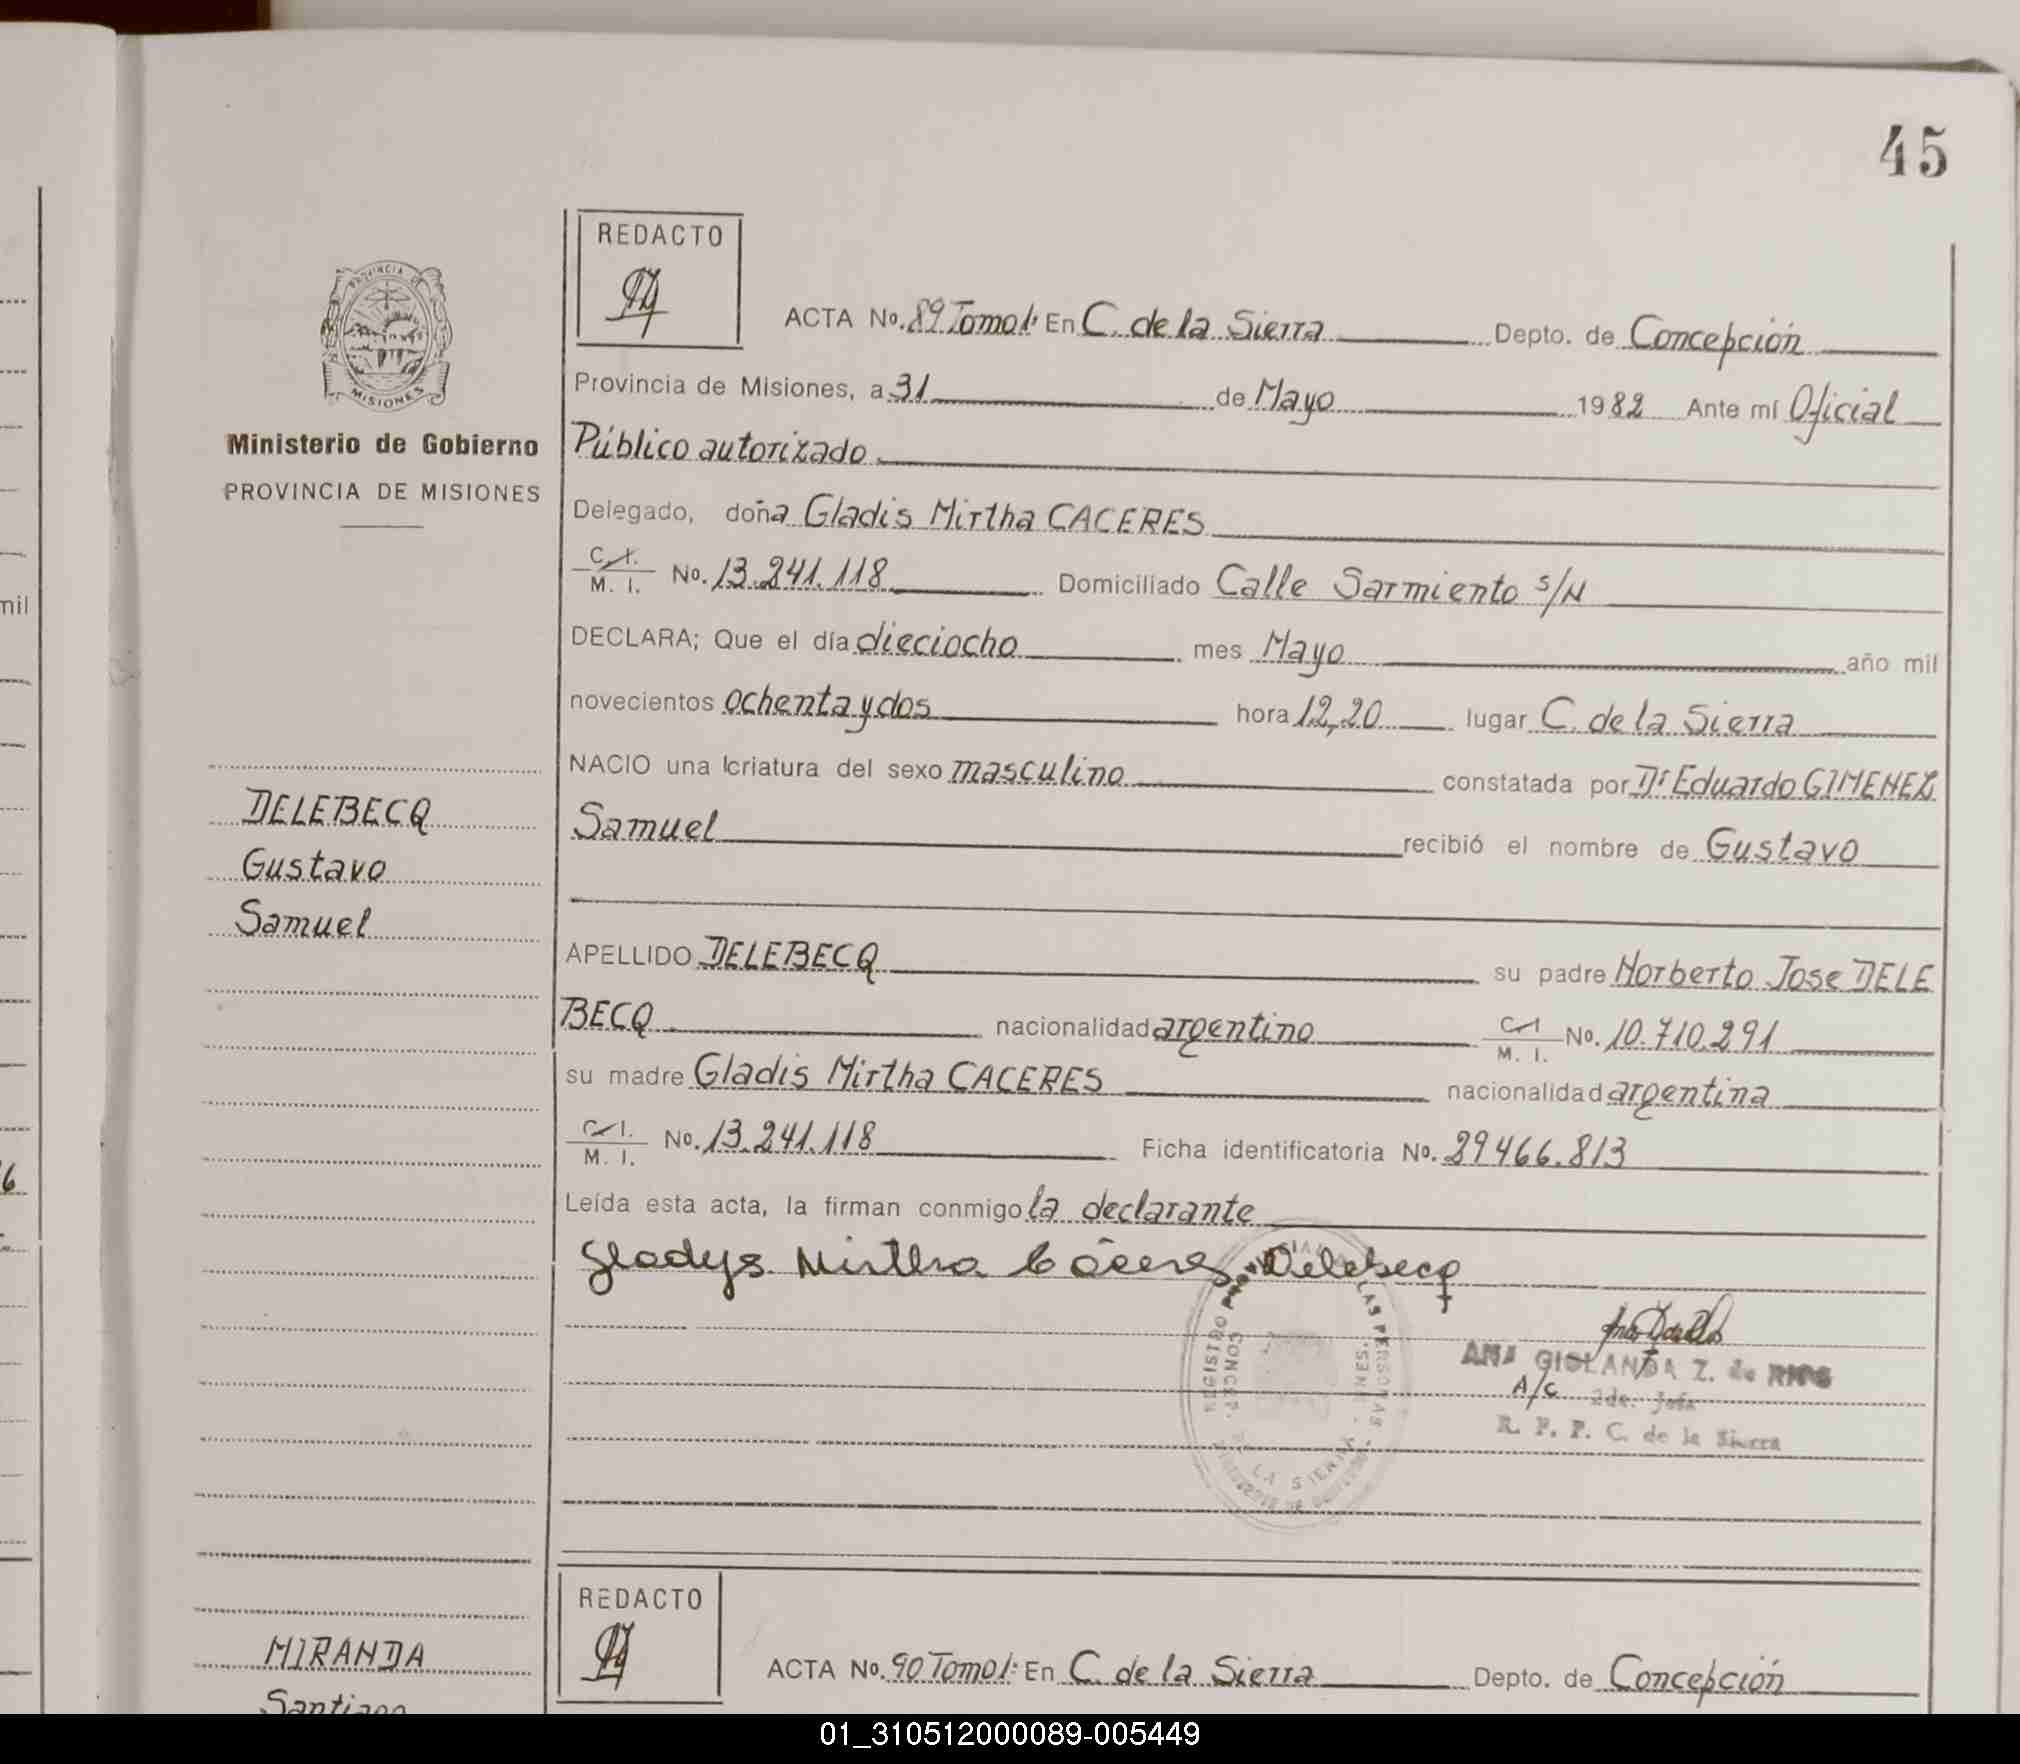 45
REDACTO
PROVINCIA DE
MISIONES
ACTA No. 89 Tomo 1: En C. de la Sierra Depto. de Concepción
Provincia de Misiones, a 31 de Mayo 1982 Ante mí Oficial
Ministerio de Gobierno
PROVINCIA DE MISIONES
Público autorizado
Delegado, doña Gladis Mirtha CACERES
C. I.
M. I. No. 13.241.118 Domiciliado Calle Sarmiento s/N
mil
DECLARA; Que el día dieciocho mes Mayo año mil
novecientos ochenta y dos hora 12,20 lugar C. de la Sierra
NACIO una criatura del sexo masculino constatada por Dr Eduardo GIMENEZ
DELEBECQ
Gustavo
Samuel
Samuel recibió el nombre de Gustavo
APELLIDO DELEBECQ su padre Norberto Jose DELE
BECQ nacionalidad argentino C. I.
M. I. No. 10.710.291
su madre Gladis Mirtha CACERES nacionalidad argentina
C. I.
M. I. No. 13.241.118 Ficha identificatoria No. 29466.813
6
Leída esta acta, la firman conmigo la declarante
Gladys Mirtha Cáceres Delebecq
REGISTRO PROVINCIAL DE LAS PERSONAS
CONCEP. DE LA SIERRA - MISIONES
ANA GIOLANDA Z. de RIOS
A/C 2da. Jefa
R. P. P. C. de la Sierra
REDACTO
MIRANDA
Santiago
ACTA No. 90 Tomo 1: En C. de la Sierra Depto. de Concepción
01_310512000089-005449